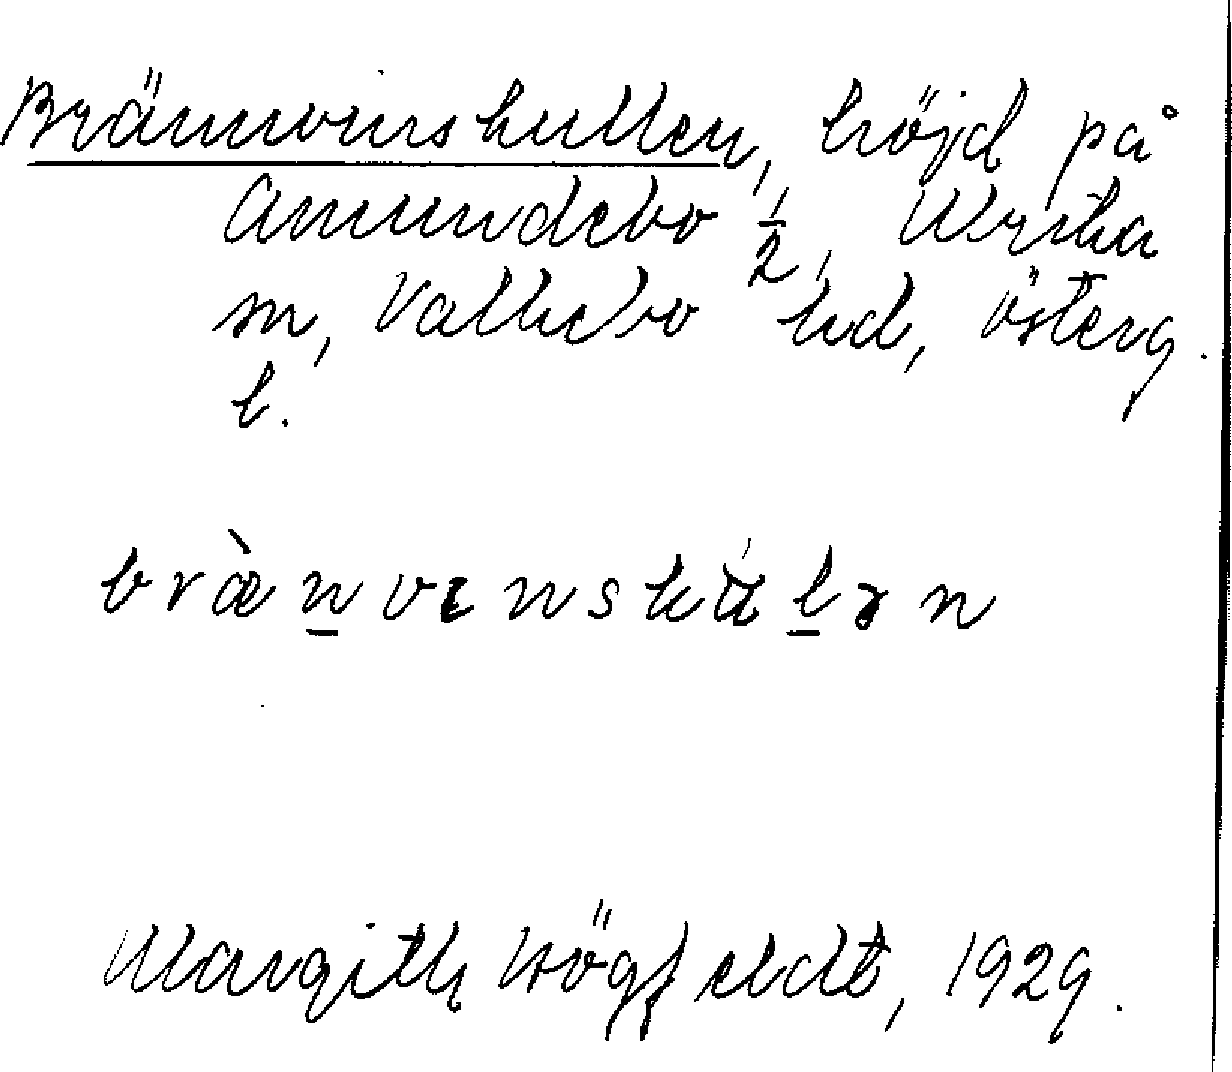 Brännvinskullen, höjd på
Amundebo 1/2, Werska
sn, Valkebo hd, Österg.
l.
bræ̀n̲vɩnskúl̲ən
Margith Högfeldt, 1929.